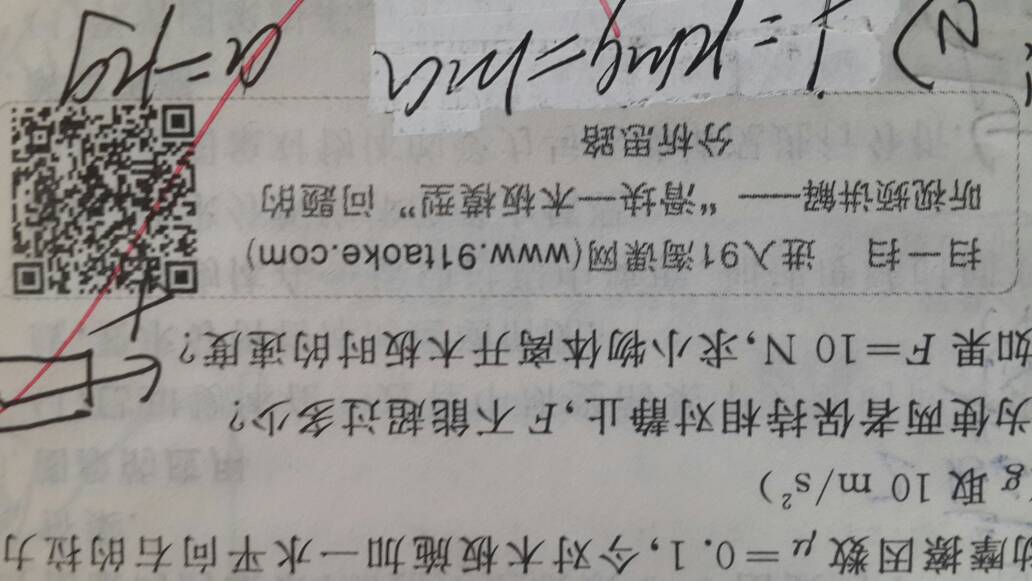 动摩擦因数 μ=0.1,今对木板施加一水平向右的拉力
g 取 10 m/s²)
为使两者保持相对静止,F 不能超过多少?
如果 F=10 N,求小物体离开木板时的速度?
扫一扫 进入91淘课网(www.91taoke.com)
听视频讲解——“滑块—木板模型”问题的
分析思路
f=μmg=ma
a=μg